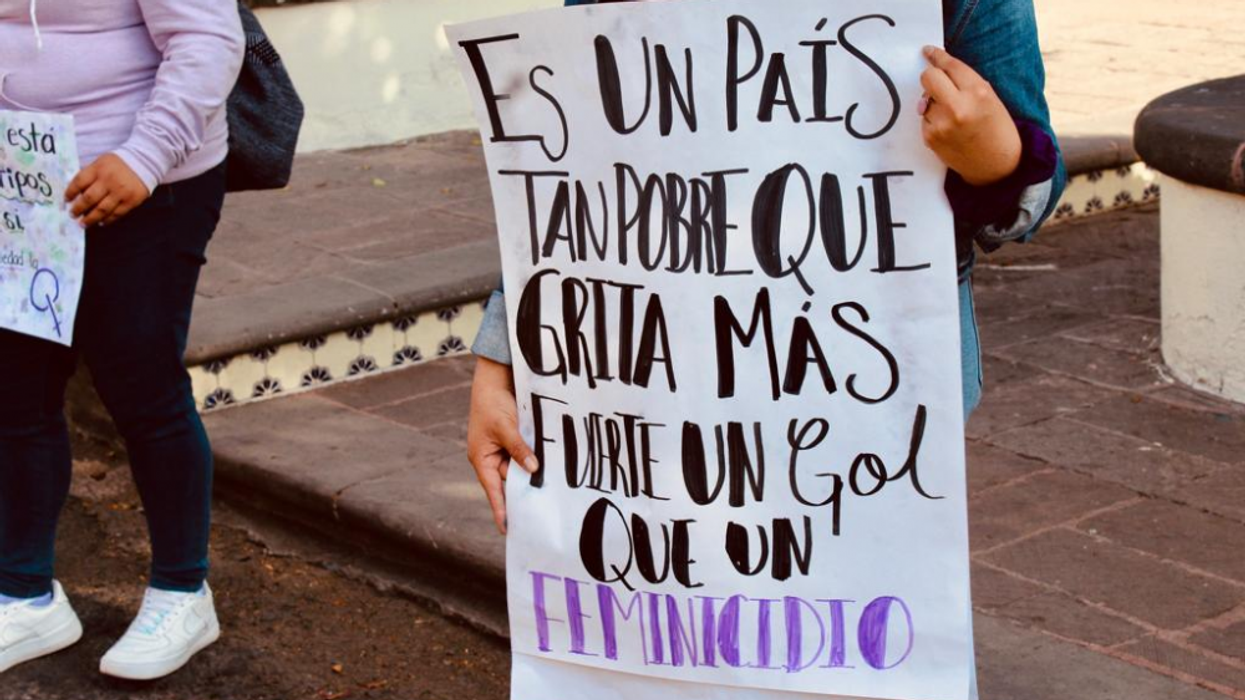 Es UN PAÍS
TAN POBRE QUE
GRITA MÁS
FUERTE UN Gol
QUE UN
FEMINICIDIO
está
ripos
si
edad la